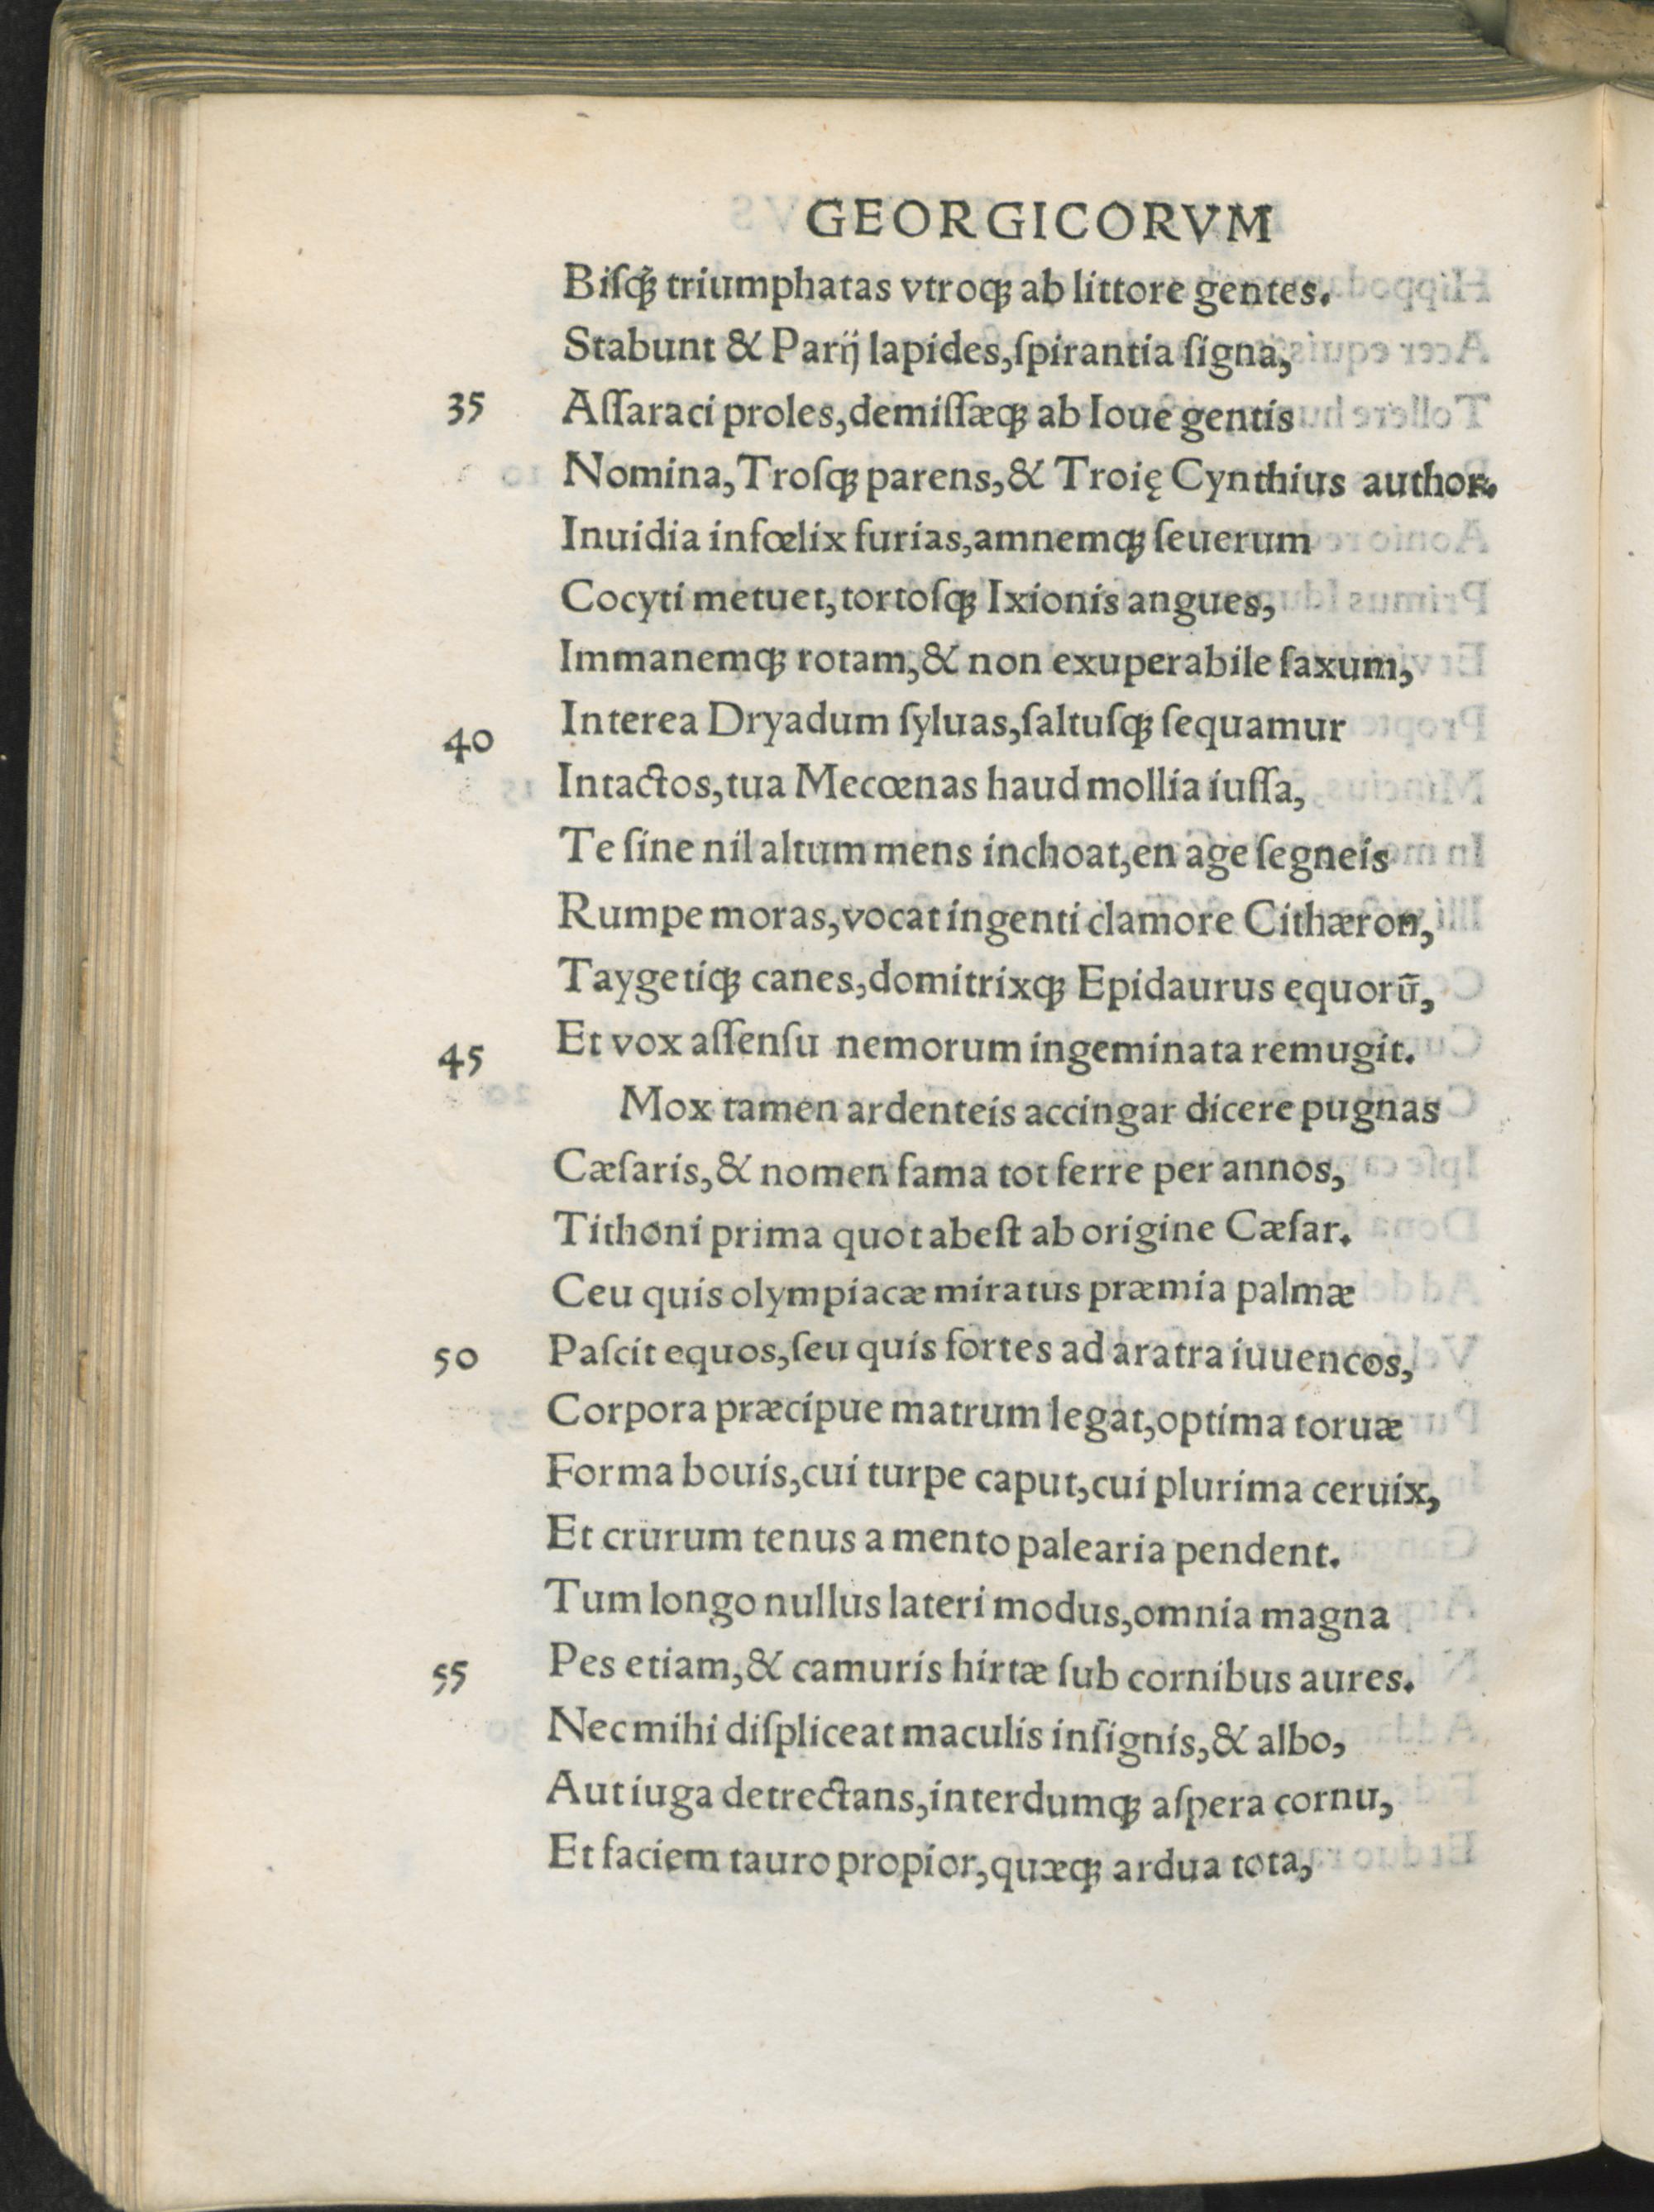 GEORGICORVM
Biſqꝫ triumphatas vtroqꝫ ab littore gentes.
Stabunt & Parij lapides,ſpirantia ſigna,
35 Aſſaraci proles,demiſſæqꝫ ab Ioue gentis
Nomina,Troſqꝫ parens,& Troię Cynthius author.
Inuidia infœlix furias,amnemqꝫ ſeuerum
Cocyti metuet,tortoſqꝫ Ixionis angues,
Immanemqꝫ rotam,& non exuperabile ſaxum,
40 Interea Dryadum ſyluas,ſaltuſqꝫ ſequamur
Intactos,tua Mecœnas haud mollia iuſſa,
Te ſine nil altum mens inchoat,en age ſegneis
Rumpe moras,vocat ingenti clamore Cithæron,
Taygetiqꝫ canes,domitrixqꝫ Epidaurus equorū,
45 Et vox aſſenſu nemorum ingeminata remugit.
Mox tamen ardenteis accingar dicere pugnas
Cæſaris,& nomen fama tot ferre per annos,
Tithoni prima quot abeſt ab origine Cæſar.
Ceu quis olympiacæ miratus præmia palmæ
50 Paſcit equos,ſeu quis fortes ad aratra iuuencos,
Corpora præcipue matrum legat,optima toruæ
Forma bouis,cui turpe caput,cui plurima ceruix,
Et crurum tenus a mento palearia pendent.
Tum longo nullus lateri modus,omnia magna
55 Pes etiam,& camuris hirtæ ſub cornibus aures.
Nec mihi diſpliceat maculis inſignis,& albo,
Aut iuga detrectans,interdumqꝫ aſpera cornu,
Et faciem tauro propior,quæqꝫ ardua tota,